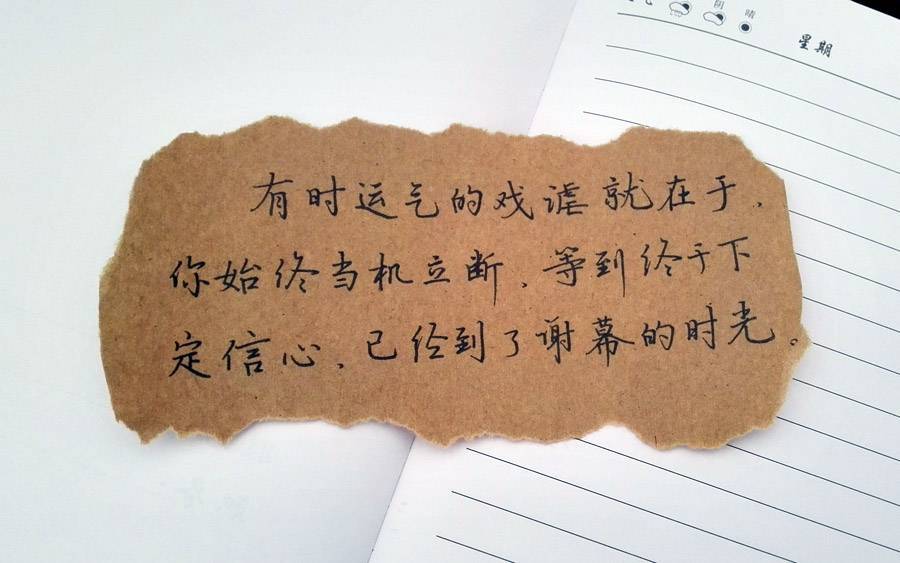 阴 晴
星期
有时运气的戏谑就在于,
你始终当机立断,等到终于下
定信心,已经到了谢幕的时光。